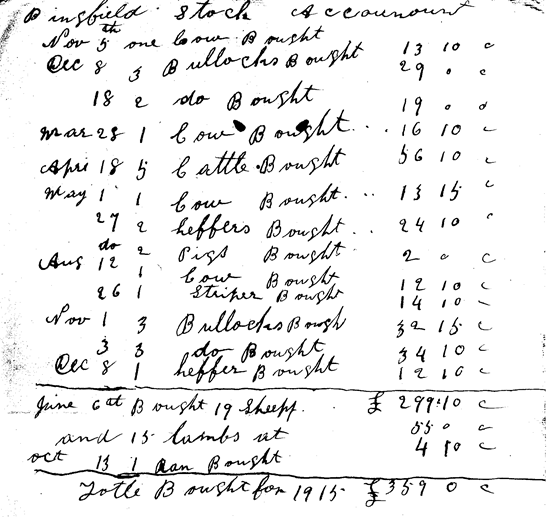 Bingfield Stock Accounount
Nov 5th one Cow Bought 13 10 c
Dec 8 3 Bullocks Bought 29 0 c
18 2 do Bought 19 0 d
Mar 28 1 Cow Bought... 16 10 c
Apri 18 5 Cattle Bought 56 10 c
May 1 1 Cow Bought... 13 15 c
27 2 heffers Bought... 24 10 c
do 2 Pigs Bought 2 0 c
Aug 12 1 Cow Bought 12 10 c
26 1 Striper Bought 14 10 c
Nov 1 3 Bullocks Bough 32 15 c
3 3 do Bought 34 10 c
Dec 8 1 heffer Bought 12 10 c
June 6 at Bought 19 Sheepp. £ 299:10 c
and 15 lambs at 55 0 c
oct 13 1 Ran Bought 4 10 c
Totle Bought for 1915 £359 0 c